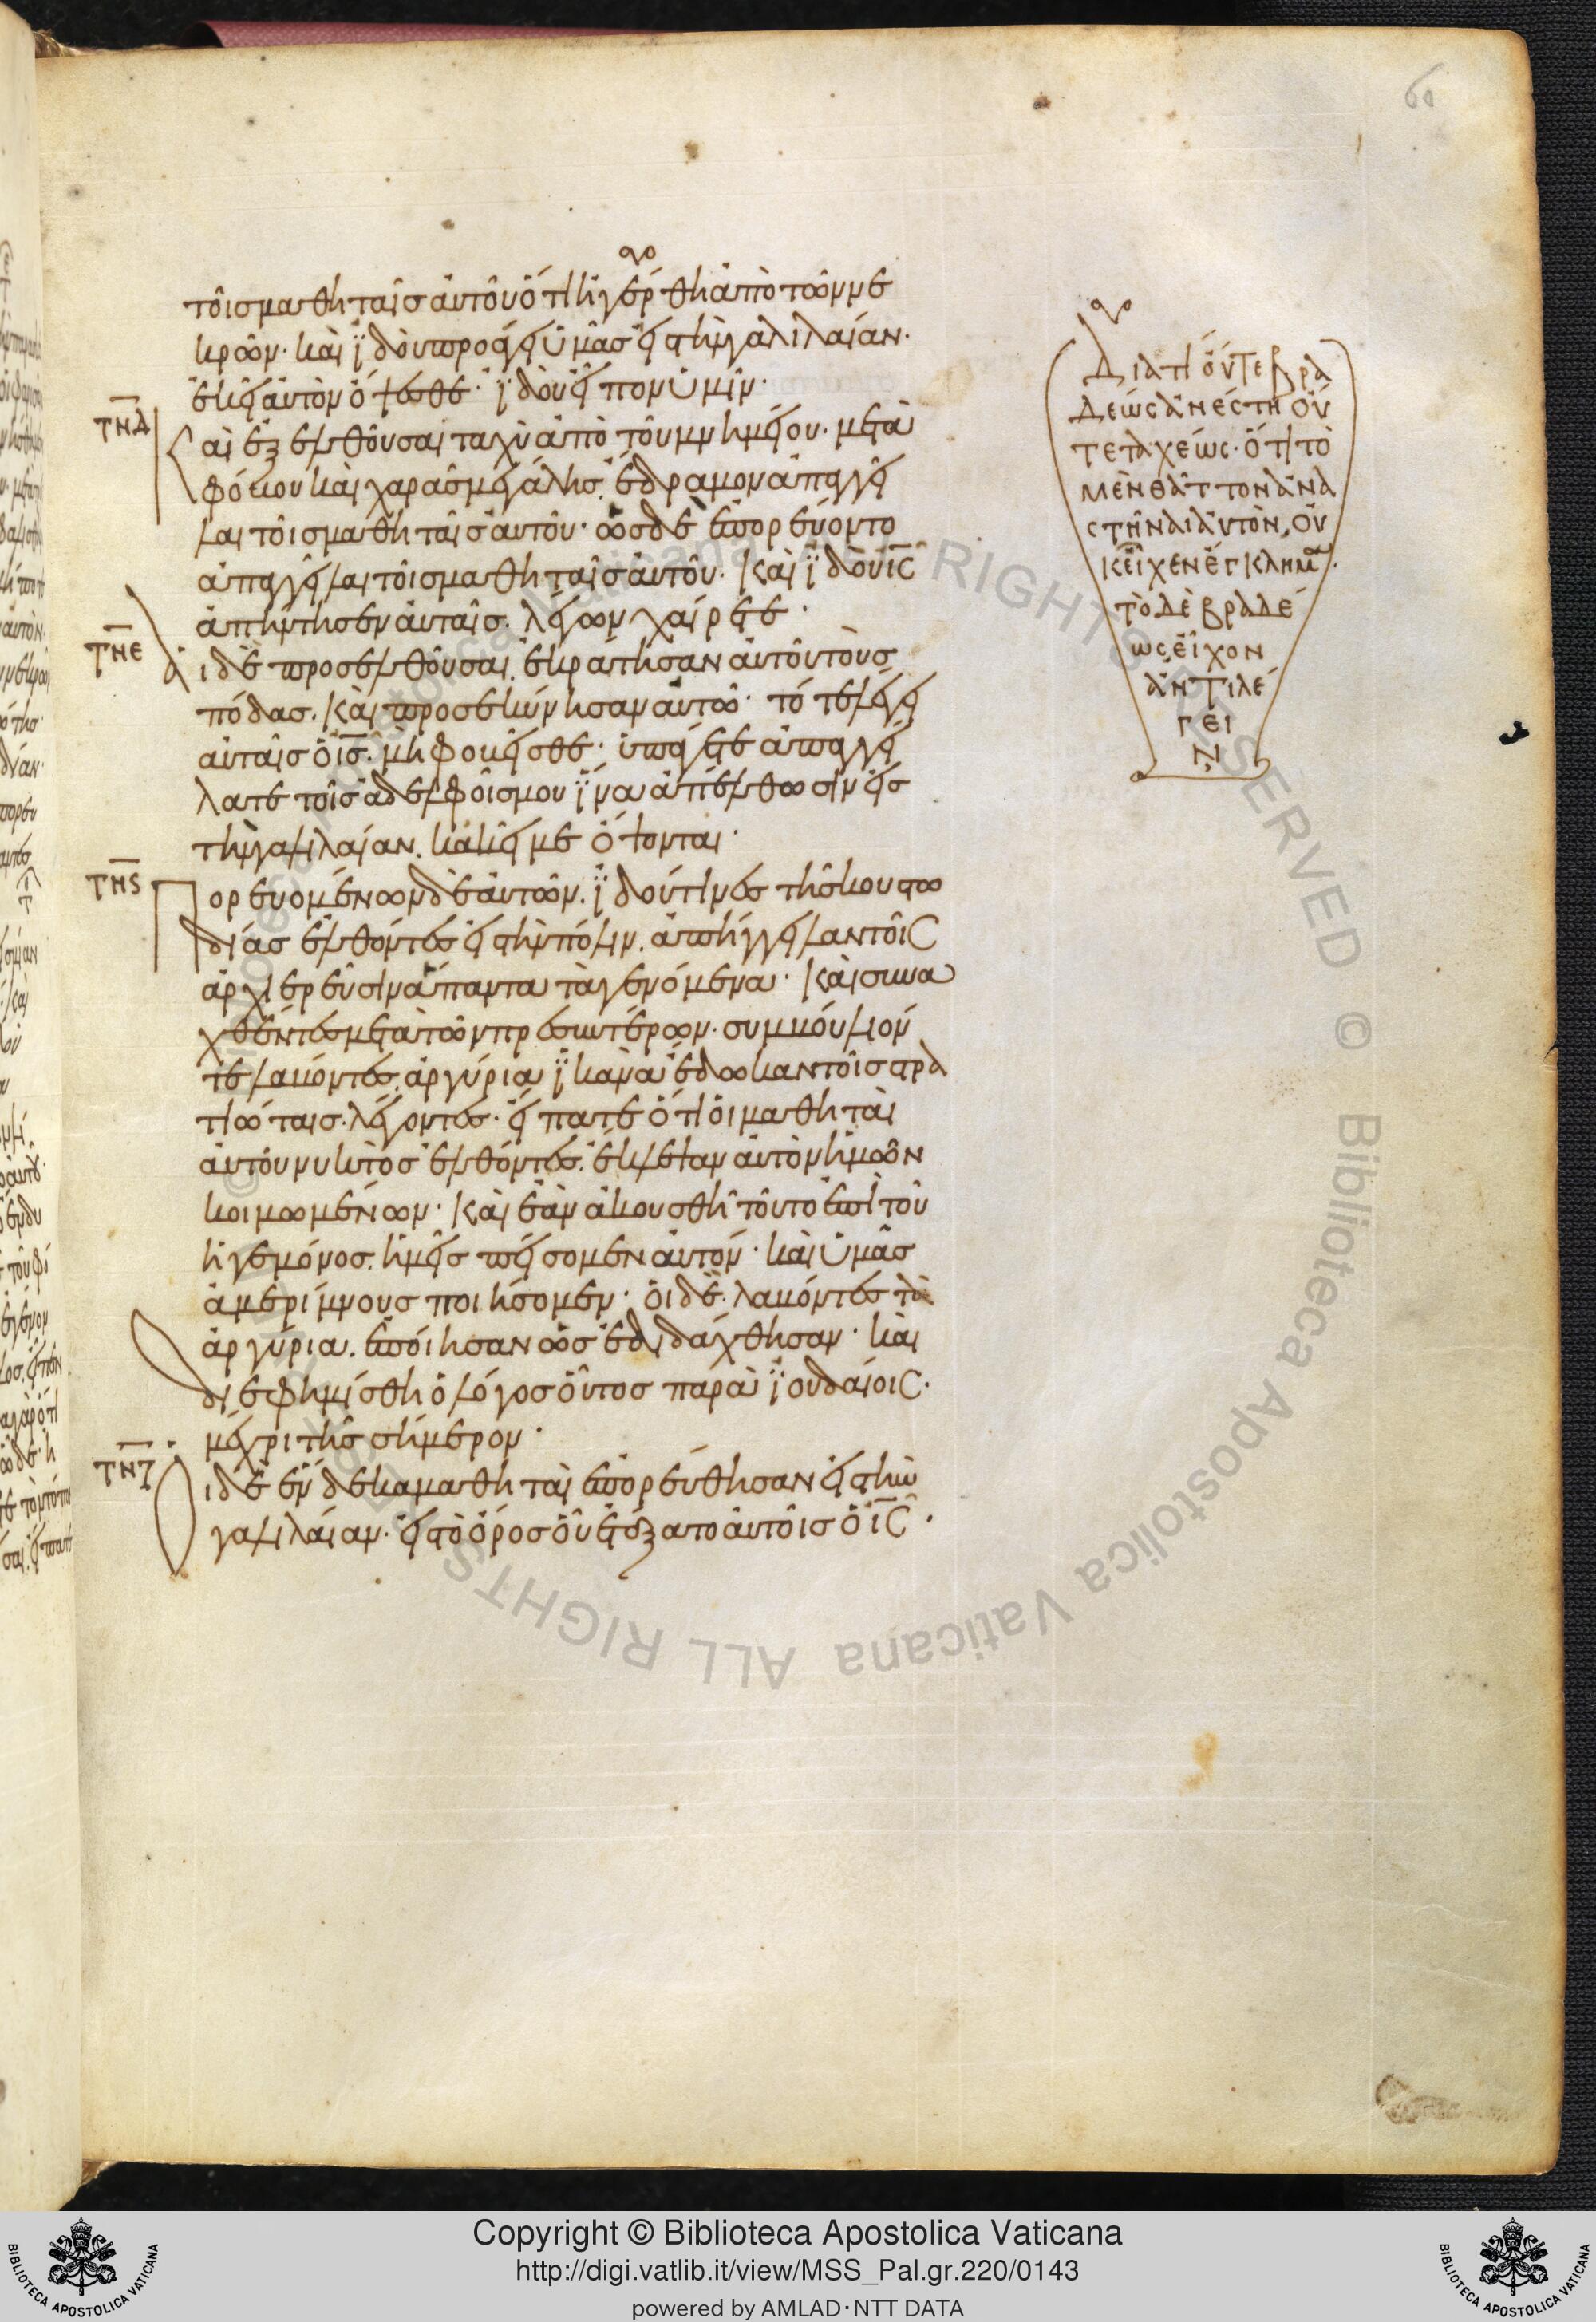 60
τοῖς μαθηταῖς αὐτοῦ ὅτι ἠγέρθη ἀπὸ τῶν νε
κρῶν· καὶ ϊδοὺ προάγει ὑμᾶς εἰς τὴν γαλιλαίαν·
ἐκεῖ αὐτὸν ὄψεσθε· ϊδοὺ εἶπον ὑμῖν·
τνδ
καὶ ἐξελθοῦσαι ταχὺ ἀπὸ τοῦ μνημείου· μετὰ
φόβου καὶ χαρᾶς μεγάλης. ἔδραμον ἀπαγγεῖ
λαι τοῖς μαθηταῖς αὐτοῦ· ὡς δὲ ἐπορεύοντο
ἀπαγγεῖλαι τοῖς μαθηταῖς αὐτοῦ. καὶ ϊδοὺ ις
ἀπήντησεν αὐταῖς. λέγων χαίρετε·
τνε
αἱ δὲ προσελθοῦσαι. ἐκράτησαν αὐτοῦ τοὺς
πόδας. καὶ προσεκύνησαν αὐτῶ· τότε λέγει
αὐταῖς ὁ ις. μὴ φοβεῖσθε· ὑπάγετε ἀπαγγεί
λατε τοῖς ἀδελφοῖς μου ϊνα ἀπέλθωσιν εἰς
τὴν γαλιλαίαν. κακεῖ με ὄψονται·
τνς
Πορευομένων δὲ αὐτῶν. ϊδού τινες τῆς κουστω
δίας ἐλθόντες εἰς τὴν πόλιν. ἀπήγγειλαν τοῖς
ἀρχιερεῦσιν ἅπαντα τὰ γενόμενα· καὶ συνα
χθέντες μετὰ τῶν πρεσβυτέρων. συμβούλιόν
τε λαβόντες. ἀργύρια ϊκανὰ ἔδωκαν τοῖς στρα
τιώταις. λέγοντες· εἴπατε ὅτι οἱ μαθηταὶ
αὐτοῦ νυκτὸς ἐλθόντες. ἔκλεψαν αὐτὸν ἡμῶν
κοιμωμένων· καὶ ἐὰν ἀκουσθῆ τοῦτο ἐπὶ τοῦ
ἡγεμόνος. ἡμεῖς πείσομεν αὐτόν· καὶ ὑμᾶς
ἀμερίμνους ποιήσομεν· οἱ δὲ. λαβόντες τὰ
ἀργύρια. ἐποίησαν ὡς ἐδιδάχθησαν· καὶ
διεφημίσθη ὁ λόγος οὗτος παρὰ ϊουδαίοις·
μέχρι τῆς σήμερον·
τνζ
Οἱ δὲ ἕνδεκα μαθηταὶ ἐπορεύθησαν εἰς τὴν
γαλιλαίαν. εἰς τὸ ὄρος οὗ ἐτάξατο αὐτοῖς ὁ ις·
Διατί οὔτε βρα
δέως ἀνέστη οὔ
τε ταχέως· ὅτι τὸ
μὲν θᾶττον ἀνα
στῆναι αὐτὸν, οὐ
κ εἶχεν ἔγκλημα·
τὸ δὲ βραδέ
ως εἶχον
ἀντιλέ
γει
ν
Copyright © Biblioteca Apostolica Vaticana
http://digi.vatlib.it/view/MSS_Pal.gr.220/0143
powered by AMLAD·NTT DATA
BIBLIOTECA APOSTOLICA VATICANA
BIBLIOTECA APOSTOLICA VATICANA
© Biblioteca Apostolica Vaticana ALL RIGHTS RESERVED © Biblioteca Apostolica Vaticana ALL RIGHTS RESERVED